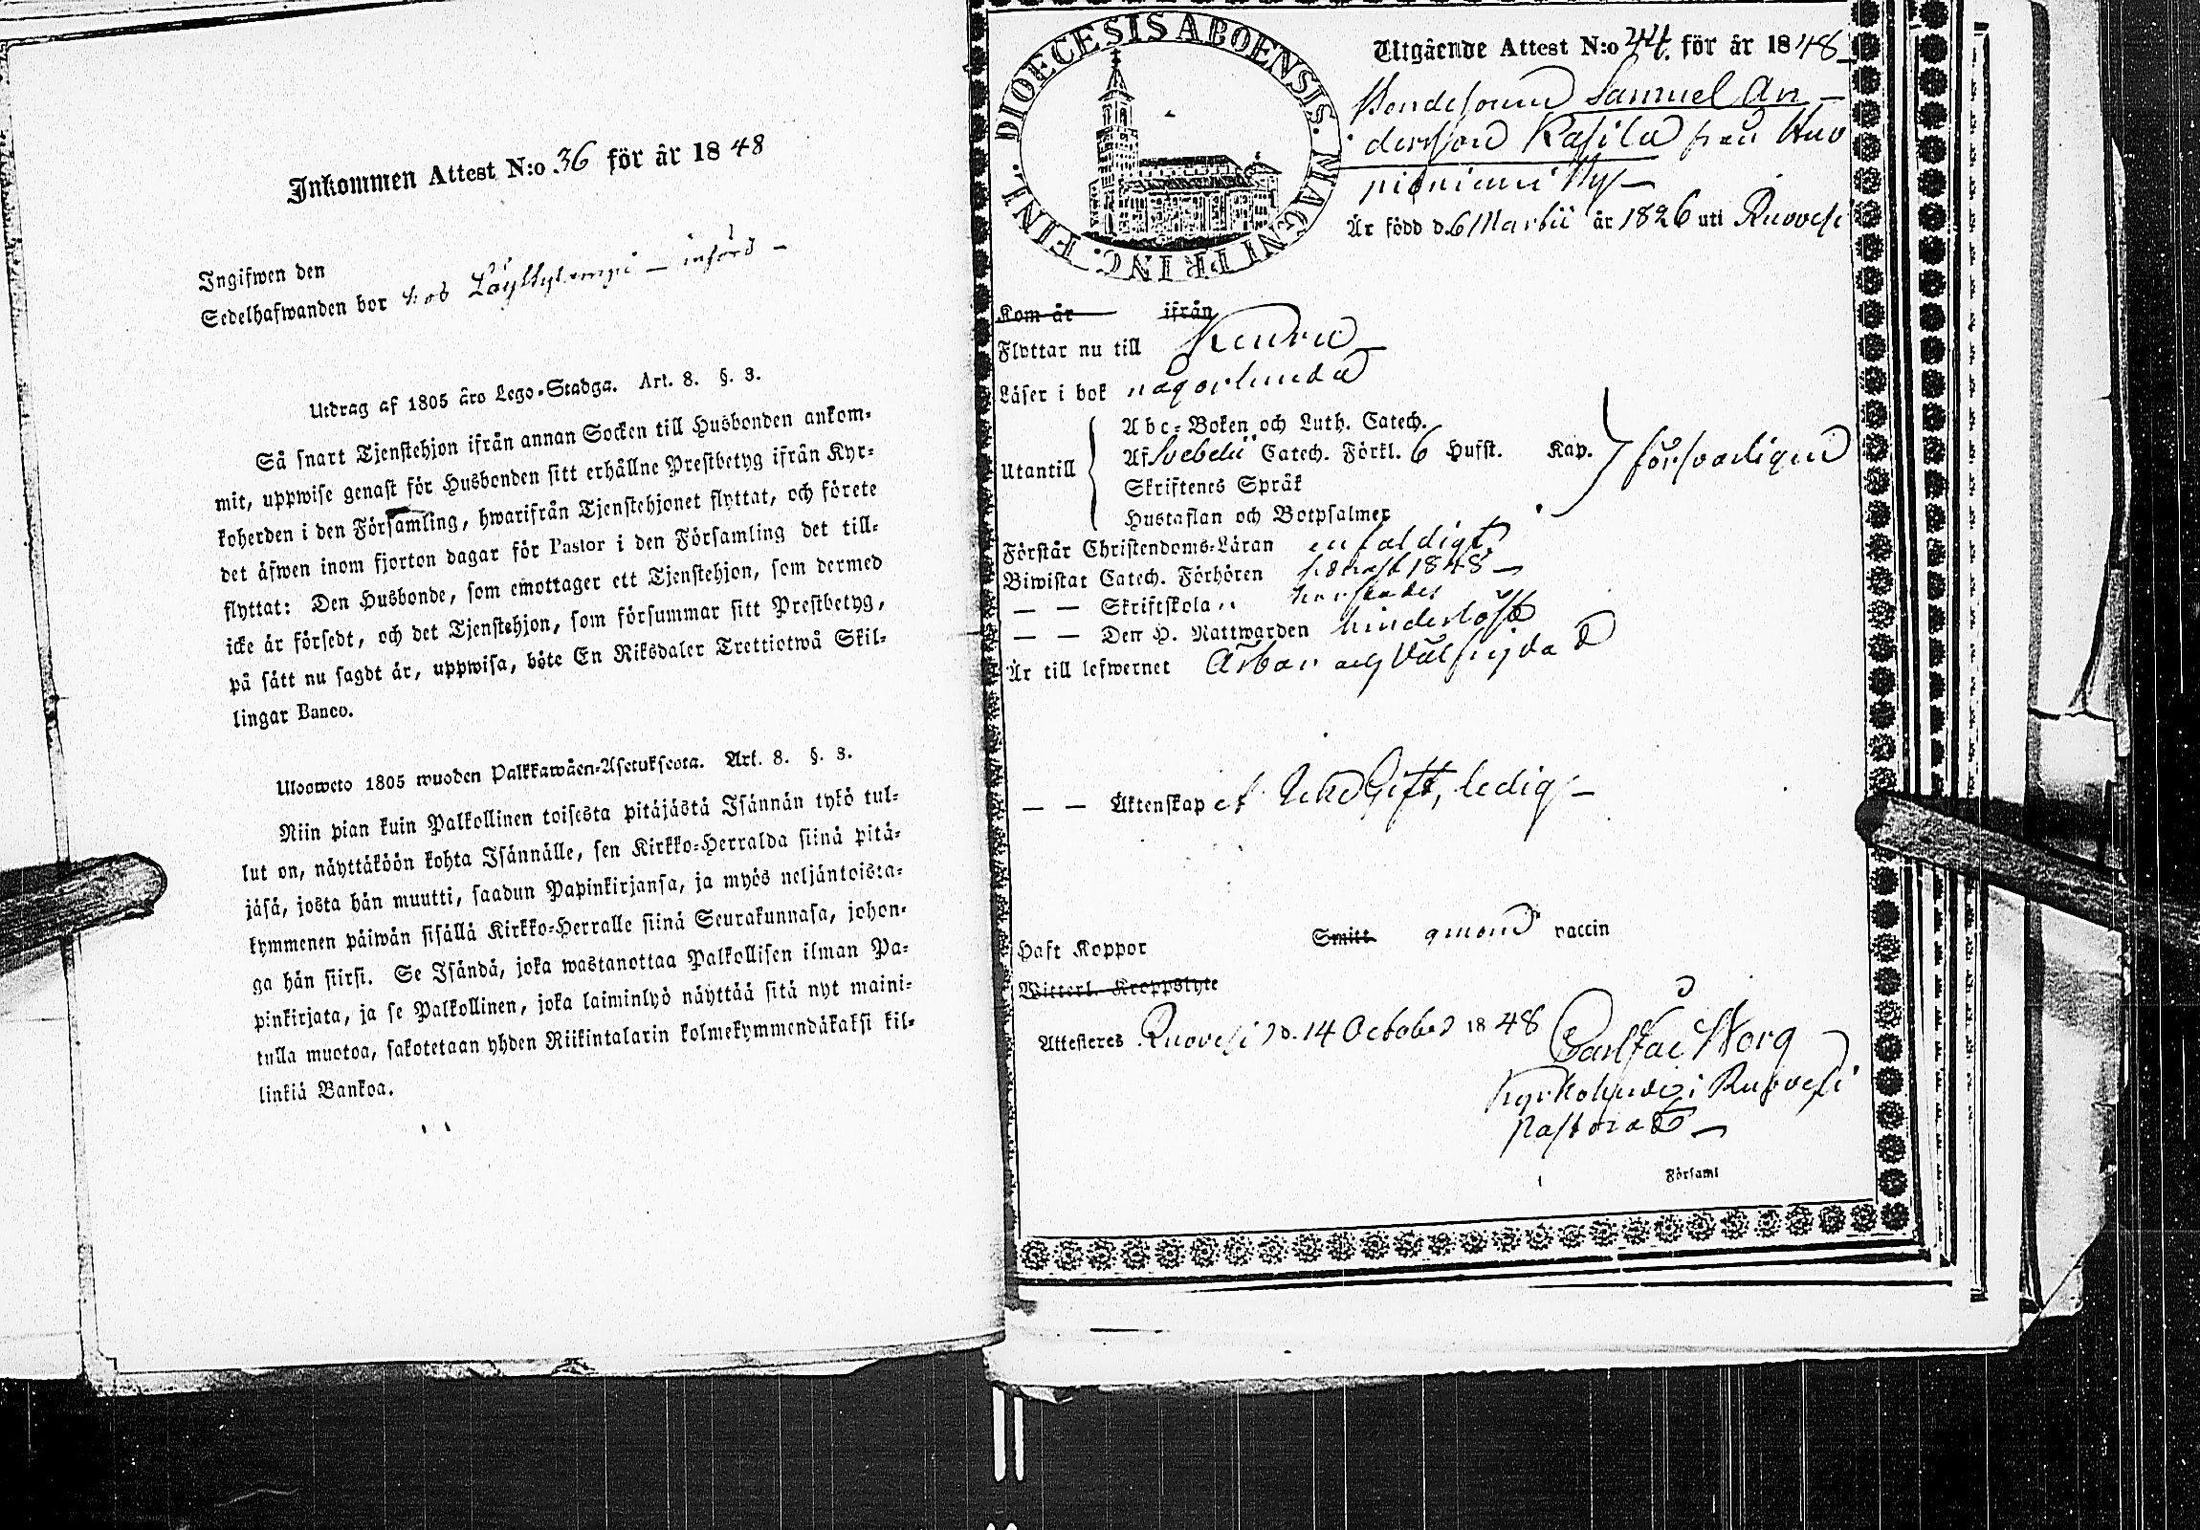 Inkommen Attest N:o 36 för år 1848
Ingifwen den
Sedelhafwanden bor hos Löytykempi – införd –
Utdrag af 1805 års Lego-Stadga. Art. 8. §. 3.
Så snart Tjenstehjon ifrån annan Socken till Husbonden ankom-
mit, uppwise genast för Husbonden sitt erhållne Prestbetyg ifrån Kyr-
koherden i den Församling, hwarifrån Tjenstehjonet flyttat, och förete
det äfwen inom fjorton dagar för Pastor i den Församling det till-
flyttat: Den Husbonde, som emottager ett Tjenstehjon, som dermed
icke är försedt, och det Tjenstehjon, som försummar sitt Prestbetyg,
på sätt nu sagdt är, uppwisa, böte En Riksdaler Trettiotwå Skil-
lingar Banco.
Uloosweto 1805 wuoden Palkkawäen-Asetuksesta. Art. 8. §. 3.
Niin pian kuin Palkollinen toisesta pitäjästä Isännän tykö tul-
lut on, näyttäköön kohta Isännälle, sen Kirkko-Herralda siinä pitä-
jäsä, josta hän muutti, saadun Papinkirjansa, ja myös neljäntoista-
kymmenen päiwän sisällä Kirkko-Herralle siinä Seurakunnasa, johon-
ga hän siirsi. Se Isändä, joka wastanottaa Palkollisen ilman Pa-
pinkirjata, ja se Palkollinen, joka laiminlyö näyttää sitä nyt maini-
tulla muotoa, sakotetaan yhden Riikintalarin kolmekymmendäkaksi kil-
linkiä Bankoa.
DIOECESIS ABOENSIS. MAGNI PRINC. FINL.
Utgående Attest N:o 44. för år 1848
Bondesonen Samuel An-
dersson Kasila från Huo
niemi By –
Är född d. 6 Martii år 1826 uti Ruovesi
Kom år ifrån
Flyttar nu till Keuru
Läser i bok någorlunda
Utantill
Abc-Boken och Luth. Catech.
Af Svebelii Catech. Förkl. 6 Hufst. Kap.
Skriftenes Språk
Hustaflan och Botpsalmer
försvarligen
Förstår Christendoms-Läran enfaldigt
Biwistat Catech. Förhören sednast 1848 –
— — Skriftskola
— — Den H. Nattwarden hinderlöst
Är till lefwernet Ärbar och Välfrejdad
— — Äktenskap et Gift, ledig –
Haft Koppor Smitt. genom vaccin
Witterl. Kroppslyte
Attesteres Ruovesi d. 14 October 1848
Carl Fac Borg
Kyrkoherde i Ruovesi
Pastorat –
Församl